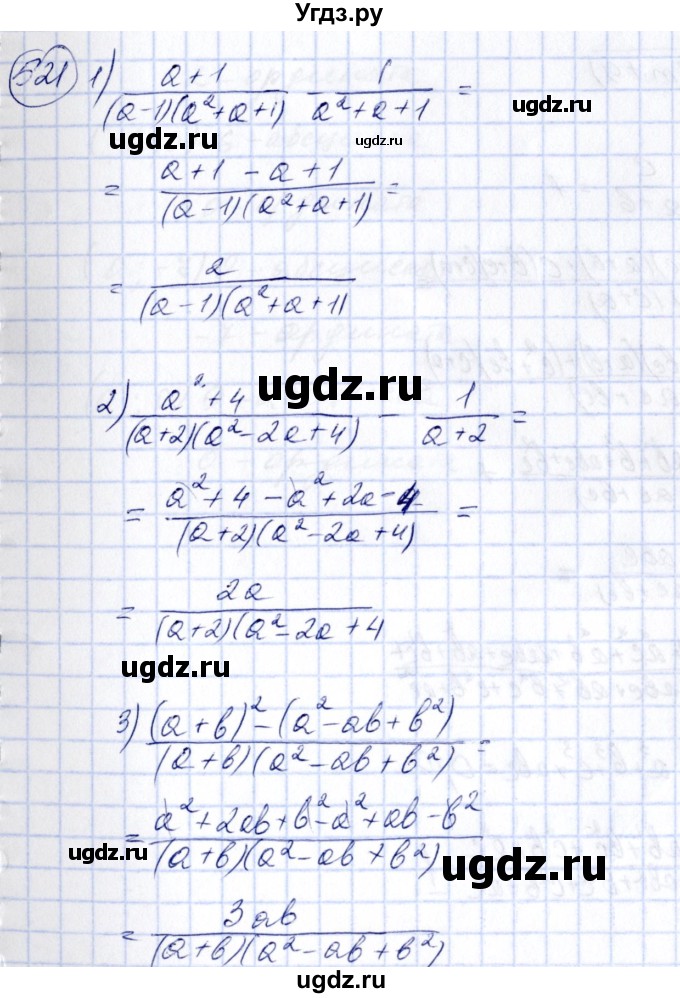 Угдз.ру
521 1) (a+1)/((a-1)(a²+a+1)) - 1/(a²+a+1) =
ugdz.ru ugdz.ru ugdz.ru
= (a+1-a+1)/((a-1)(a²+a+1)) =
= 2/((a-1)(a²+a+1)
ugdz.ru ugdz.ru
2) (a²+4)/((a+2)(a²-2a+4)) - 1/(a+2) =
= (a²+4-a²+2a-4)/((a+2)(a²-2a+4)) =
= 2a/((a+2)(a²-2a+4
ugdz.ru
3) ((a+b)²-(a²-ab+b²))/((a+b)(a²-ab+b²)) =
= (a²+2ab+b²-a²+ab-b²)/((a+b)(a²-ab+b²))
ugdz.ru ugdz.ru
= 3ab/((a+b)(a²-ab+b²))
ugdz.ru